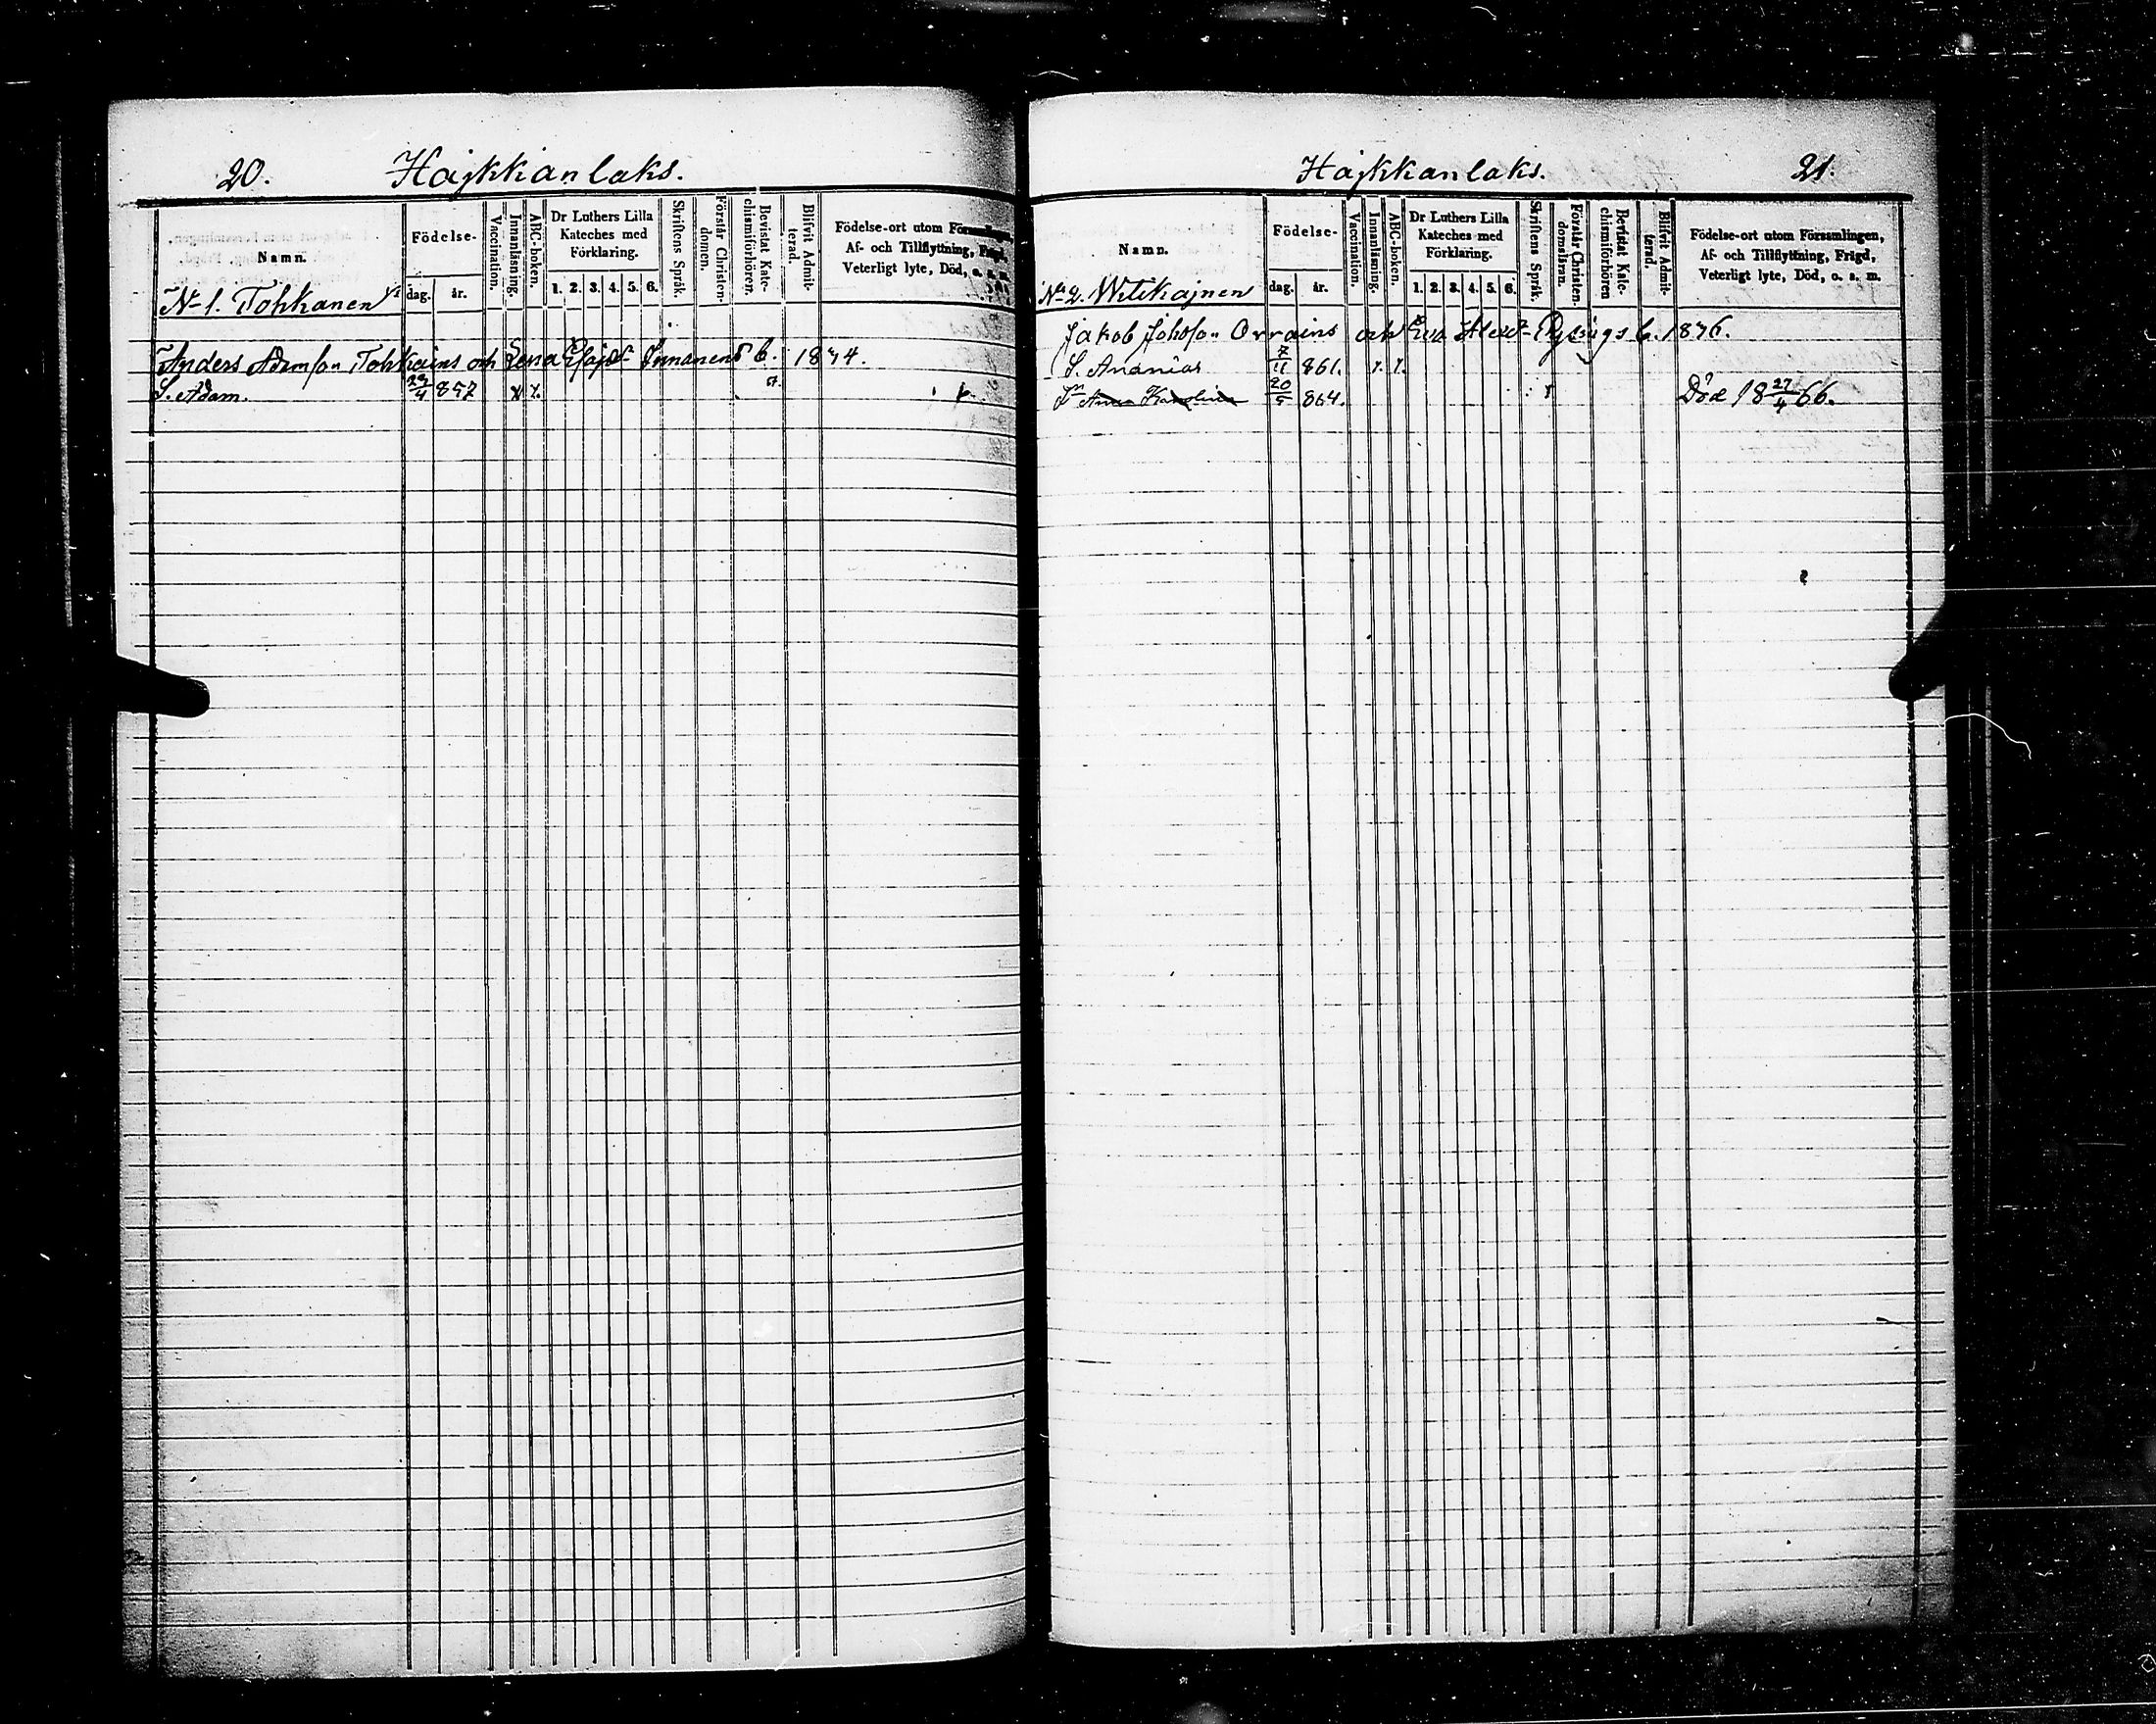 20. Hajkkianlaks.
Namn.
Födelse-
dag. år.
Vaccination.
Innanläsning.
ABC-boken.
Dr Luthers Lilla Kateches med Förklaring.
1. 2. 3. 4. 5. 6.
Skriftens Språk.
Förstår Christendomen.
Bevistat Katechismiförhören.
Blifvit Admitterad.
Födelse-ort utom Församlingen, Af- och Tillflyttning, Frägd, Veterligt lyte, Död, o. s. m.
No 1. Tohkanen
Anders Adamson Tohkains och Lena Esajæ dr Innanens b. 1844.
S. Adam. 29/4 857
Hajkkanlaks. 21.
Namn.
Födelse-
dag. år.
Vaccination.
Innanläsning.
ABC-boken.
Dr Luthers Lilla Kateches med Förklaring.
1. 2. 3. 4. 5. 6.
Skriftens Språk.
Förstår Christendomsläran.
Bevistat Katechismiförhören
Blifvit Admitterad.
Födelse-ort utom Församlingen, Af- och Tillflyttning, Frägd, Veterligt lyte, Död, o. s. m.
No 2. Witikajnen
Jakob Johsson Orrains och Eva b. 1876.
S. Ananias 7/11 861.
Anna Karolina 20/5 864. Död 18 27/4 66.